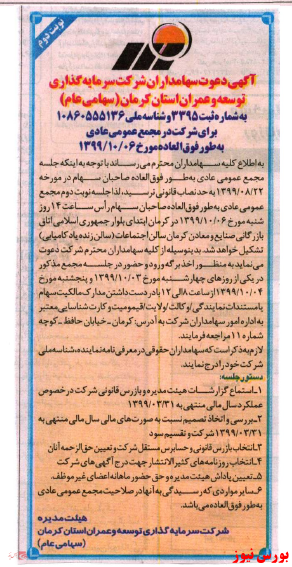 نوبت دوم
آگهی دعوت سهامداران شرکت سرمایه گذاری
توسعه و عمران استان کرمان (سهامی عام)
به شماره ثبت ۳۳۹۵ و شناسه ملی ۱۰۸۶۰۵۵۵۱۳۶
برای شرکت در مجمع عمومی عادی
به طور فوق العاده مورخ ۱۳۹۹/۱۰/۰۶
به اطلاع کلیه سهامداران محترم می رساند با توجه به اینکه جلسه
مجمع عمومی عادی به طور فوق العاده صاحبان سهام در مورخه
۱۳۹۹/۰۸/۲۲ به حد نصاب قانونی نرسید، لذا جلسه نوبت دوم مجمع
عمومی عادی به طور فوق العاده صاحبان سهام رأس ساعت ۱۴ روز
شنبه مورخ ۱۳۹۹/۱۰/۰۶ در کرمان ابتدای بلوار جمهوری اسلامی اتاق
بازرگانی صنایع و معادن کرمان سالن اجتماعات (سالن زنده یاد کامیابی)
تشکیل خواهد شد. بدینوسیله از کلیه سهامداران محترم شرکت دعوت
می نماید به منظور اخذ برگه ورود و حضور در جلسه مجمع مذکور
در یکی از روزهای چهارشنبه مورخ ۱۳۹۹/۱۰/۰۳ و پنجشنبه مورخ
۱۳۹۹/۱۰/۰۴ از ساعت ۸ الی ۱۲ با در دست داشتن مدارک مالکیت سهام
یا مستندات نمایندگی/وکالت/ولایت/قیمومیت و کارت شناسایی معتبر
به اداره امور سهامداران شرکت به آدرس: کرمان - خیابان حافظ - کوچه
شماره ۱۱ مراجعه فرمایند.
لازم به ذکر است که سهامداران حقوقی در معرفی نامه نماینده، شناسه ملی
شرکت خود را درج نمایند.
دستور جلسه:
۱- استماع گزارشات هیئت مدیره و بازرس قانونی شرکت در خصوص
عملکرد سال مالی منتهی به ۱۳۹۹/۰۳/۳۱
۲- بررسی و اتخاذ تصمیم نسبت به صورت های مالی سال مالی منتهی به
۱۳۹۹/۰۳/۳۱ شرکت و تقسیم سود
۳- انتخاب بازرس قانونی و حسابرس مستقل شرکت و تعیین حق الزحمه آنان
۴- انتخاب روزنامه های کثیرالانتشار جهت درج آگهی های شرکت
۵- تعیین پاداش هیئت مدیره و حق حضور ماهانه اعضای غیر موظف.
۶- سایر مواردی که رسیدگی به آنها در صلاحیت مجمع عمومی عادی
به طور فوق العاده می باشد.
هیئت مدیره
شرکت سرمایه گذاری توسعه و عمران استان کرمان
(سهامی عام)
بورس نیوز